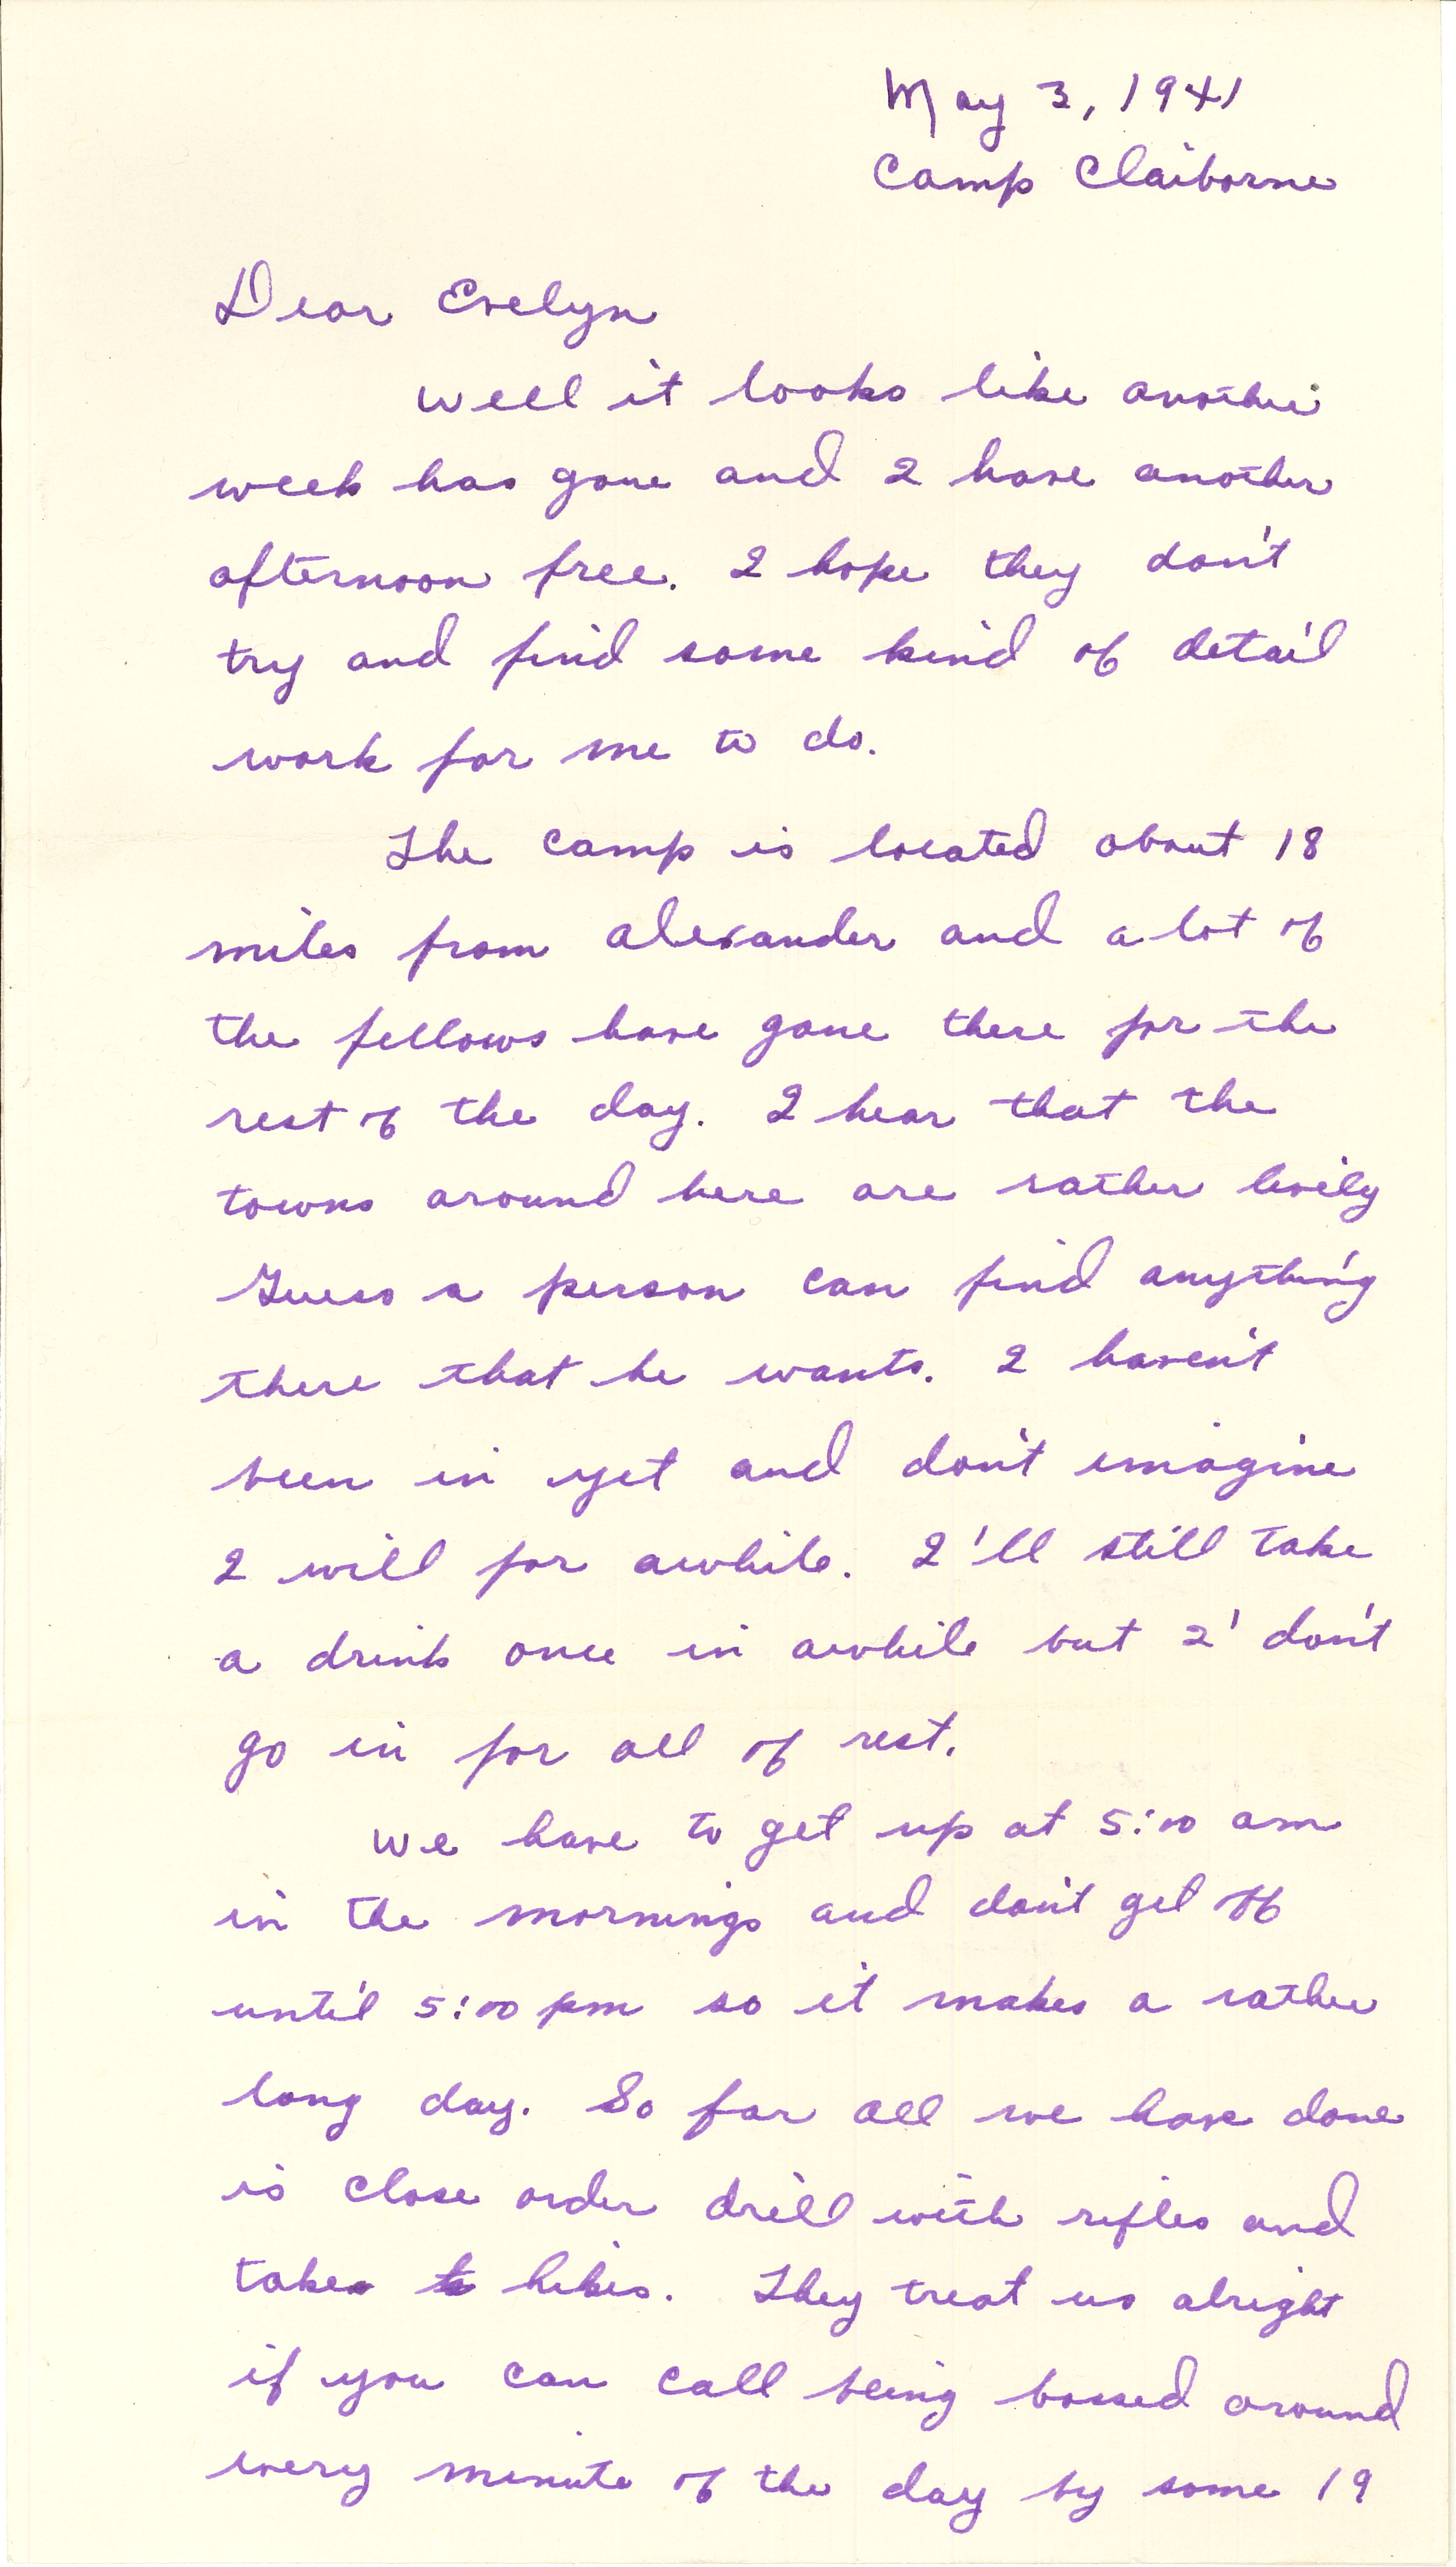 May 3, 1941
Camp Claiborne
Dear Evelyn
Well it looks like another
week has gone and I have another
afternoon free. I hope they don't
try and find some kind of detail
work for me to do.
The camp is located about 18
miles from alexander and a lot of
the fellows have gone there for the
rest of the day. I hear that the
towns around here are rather livily
Guess a person can find anything
there that he wants. I haven't
been in yet and don't imagine
I will for awhile. I'll still take
a drink once in awhile but I' don't
go in for all of rest.
We have to get up at 5:00 am
in the mornings and don't get off
until 5:00 pm so it makes a rather
long day. So far all we have done
is close order drill with rifles and
take hikes. They treat us alright
if you can call being bossed around
every minute of the day by some 19